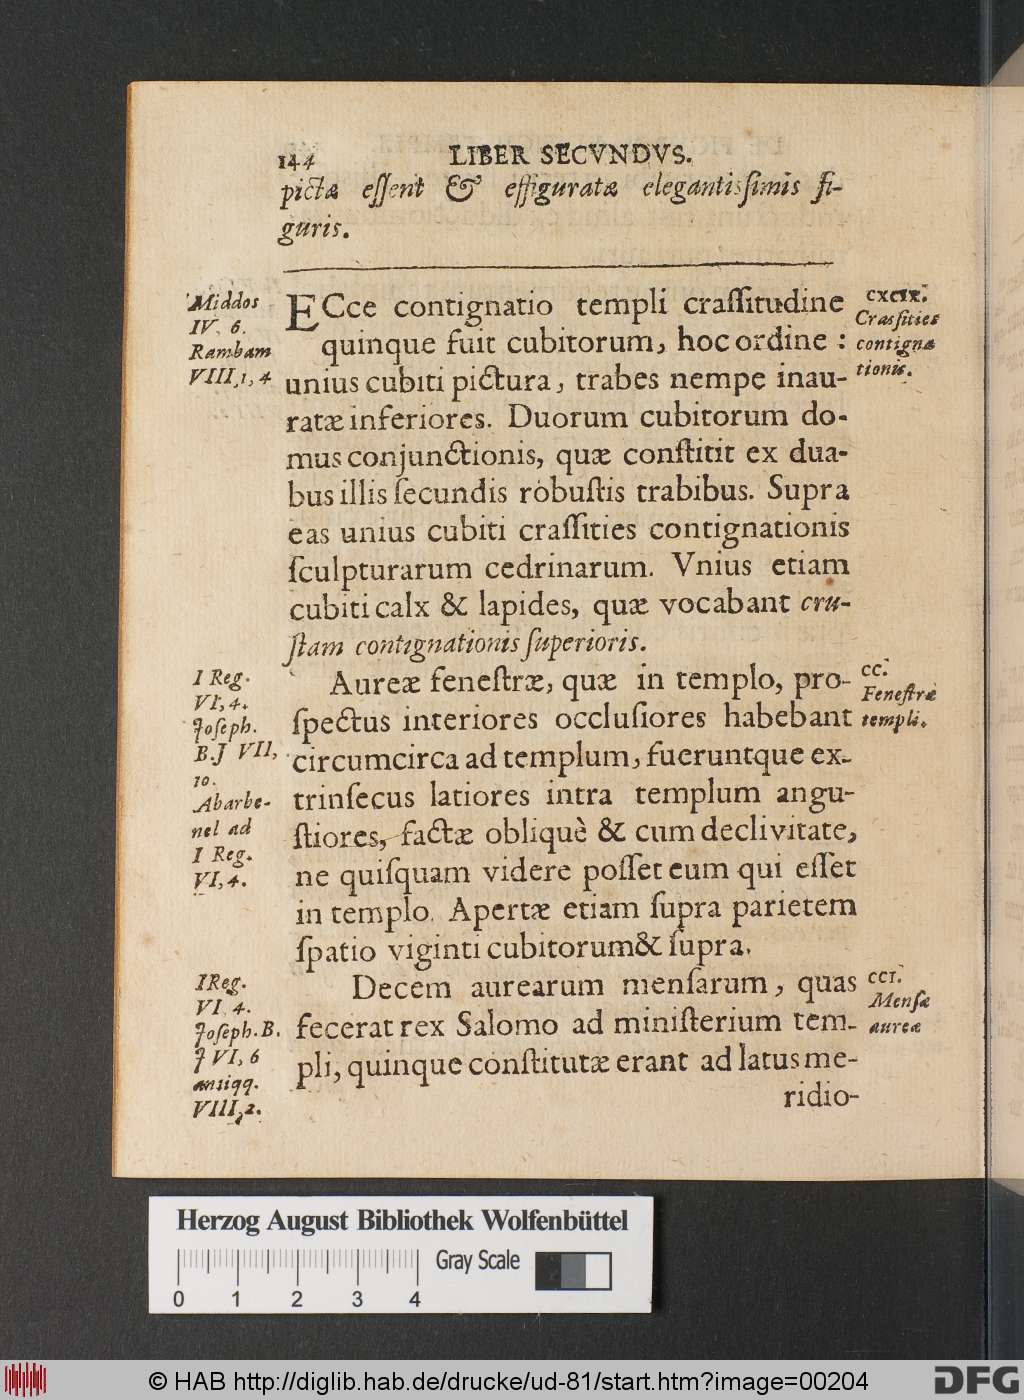 144 LIBER SECVNDVS.
pictæ eſſent & effiguratæ elegantisſimis fi-
guris.
Middos
IV. 6.
Rambam
VIII,1,4
ECce contignatio templi craſſitudine
quinque fuit cubitorum, hoc ordine :
unius cubiti pictura, trabes nempe inau-
ratæ inferiores. Duorum cubitorum do-
mus conjunctionis, quæ conſtitit ex dua-
bus illis ſecundis robuſtis trabibus. Supra
eas unius cubiti craſſities contignationis
ſculpturarum cedrinarum. Vnius etiam
cubiti calx & lapides, quæ vocabant cru-
ſtam contignationis ſuperioris.
CXCIX.
Crasſities
contigna
tionis.
I Reg.
VI, 4.
Joſeph.
B.J VII,
10.
Abarbe-
nel ad
I Reg.
VI, 4.
Aureæ feneſtræ, quæ in templo, pro-
ſpectus interiores occluſiores habebant
circumcirca ad templum, fueruntque ex-
trinſecus latiores intra templum angu-
ſtiores, factæ obliquè & cum declivitate,
ne quiſquam videre poſſet eum qui eſſet
in templo. Apertæ etiam ſupra parietem
ſpatio viginti cubitorum & ſupra.
CC.
Feneſtræ
templi.
I Reg.
VI 4.
Joſeph. B.
J VI, 6
antiqq.
VIII, 2.
Decem aurearum menſarum, quas
fecerat rex Salomo ad miniſterium tem-
pli, quinque conſtitutæ erant ad latus me-
ridio-
CCI.
Menſæ
aureæ
Herzog August Bibliothek Wolfenbüttel
Gray Scale
0 1 2 3 4
© HAB http://diglib.hab.de/drucke/ud-81/start.htm?image=00204
DFG